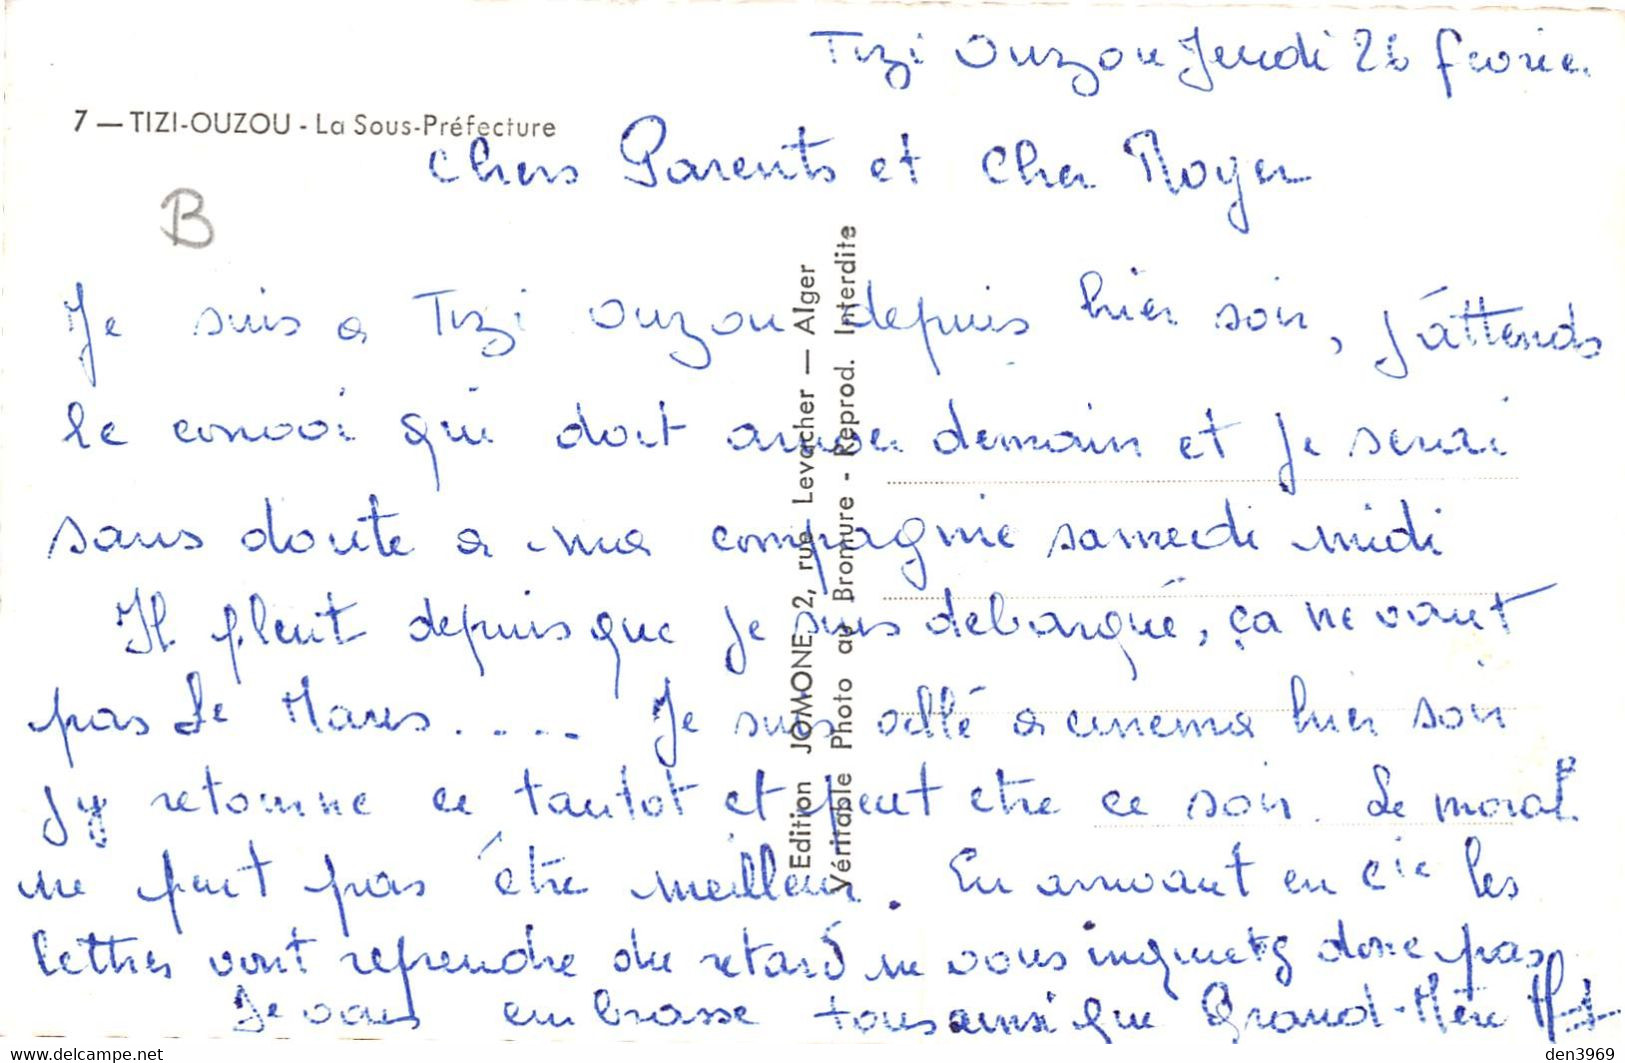 Tizi Ouzou Jeudi 26 fevrier
7 — TIZI-OUZOU - La Sous-Préfecture
Chers Parents et Cher Roger
B
Je suis a Tizi Ouzou depuis hier soir, j'attends
le convoi qui doit arriver demain et je serai
sans doute a ma compagnie samedi midi
Il pleut depuis que je suis debarqué, ça ne vaut
pas Le Mans.... Je suis allé a cinema hier soir
j'y retourne ce tantot et peut etre ce soir. Le moral
ne peut pas être meilleur. En arrivant en Cie les
lettres vont reprendre du retard ne vous inquietez donc pas
Je vous embrasse tous ainsi que Grand-Mère
Edition JOMONE, 2, rue Levacher — Alger
Véritable Photo au Bromure - Reprod. Interdite
www.delcampe.net
den3969